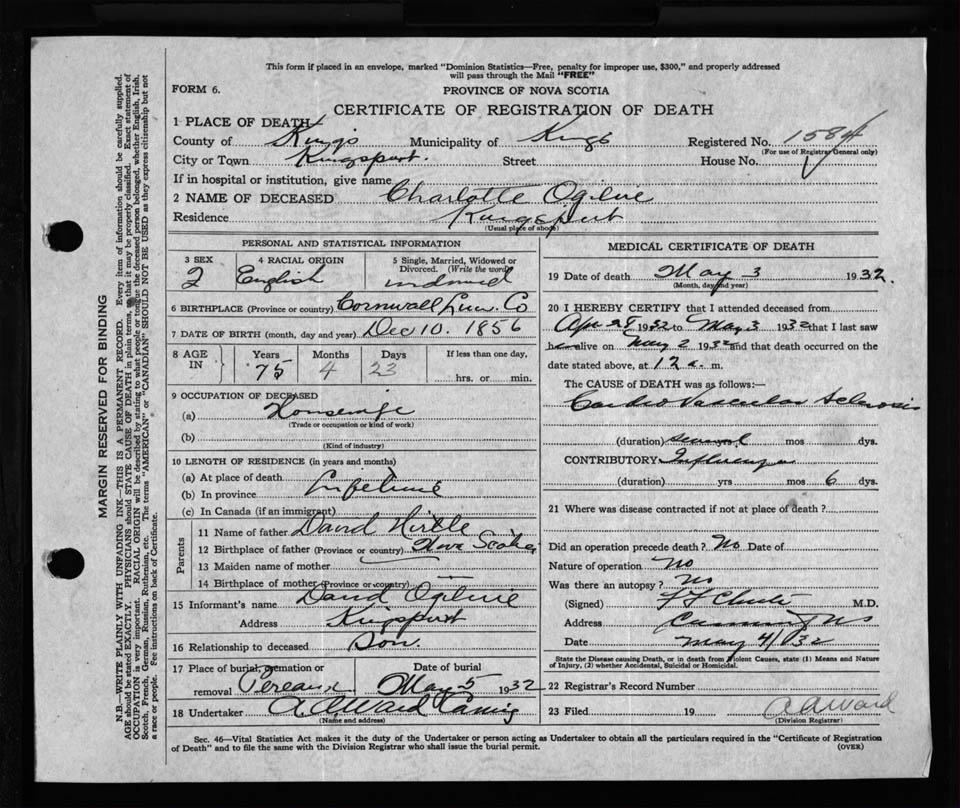 This form if placed in an envelope, marked "Dominion Statistics—Free, penalty for improper use, $300," and properly addressed
will pass through the Mail "FREE"
FORM 6.
PROVINCE OF NOVA SCOTIA
CERTIFICATE OF REGISTRATION OF DEATH
1 PLACE OF DEATH
County of Kings Municipality of Kings Registered No. 1584
(For use of Registrar General only)
City or Town Kingsport. Street House No.
If in hospital or institution, give name
2 NAME OF DECEASED Charlotte Ogilvie
Residence Kingsport
(Usual place of abode)
PERSONAL AND STATISTICAL INFORMATION
3 SEX
2
4 RACIAL ORIGIN
English
5 Single, Married, Widowed or
Divorced. (Write the word)
widowed
6 BIRTHPLACE (Province or country) Cornwall Lun. Co
7 DATE OF BIRTH (month, day and year) Dec 10. 1856
8 AGE
IN
Years Months Days If less than one day,
75 4 23 hrs. or min.
9 OCCUPATION OF DECEASED
(a) Housewife
(Trade or occupation or kind of work)
(b)
(Kind of industry)
10 LENGTH OF RESIDENCE (in years and months)
(a) At place of death
(b) In province Lifetime
(c) In Canada (if an immigrant)
Parents
11 Name of father David Hirtle
12 Birthplace of father (Province or country) Nova Scotia
13 Maiden name of mother —
14 Birthplace of mother (Province or country) —
15 Informant's name David Ogilvie
Address Kingsport
16 Relationship to deceased Son.
17 Place of burial, cremation or Date of burial
removal Pereaux May 5 1932
18 Undertaker A. A. Ward Canning
(Name and address)
MEDICAL CERTIFICATE OF DEATH
19 Date of death May 3 1932.
(Month, day and year)
20 I HEREBY CERTIFY that I attended deceased from
Apr 28 1932 to May 3 1932 that I last saw
her alive on May 2 1932 and that death occurred on the
date stated above, at 12 a. m.
The CAUSE of DEATH was as follows:—
Cardio Vascular Sclerosis
(duration) several mos dys.
CONTRIBUTORY Influenza
(duration) yrs mos 6 dys.
21 Where was disease contracted if not at place of death?
Did an operation precede death? No Date of
Nature of operation No
Was there an autopsy? No
(Signed) M.D.
Address Canning NS
Date May 4/1932
State the Disease causing Death, or in death from Violent Causes, state (1) Means and Nature
of Injury, (2) whether Accidental, Suicidal or Homicidal.
22 Registrar's Record Number
23 Filed 19 A A Ward
(Division Registrar)
Sec. 46—Vital Statistics Act makes it the duty of the Undertaker or person acting as Undertaker to obtain all the particulars required in the "Certificate of Registration
of Death" and to file the same with the Division Registrar who shall issue the burial permit. (OVER)
MARGIN RESERVED FOR BINDING
N.B.—WRITE PLAINLY WITH UNFADING INK—THIS IS A PERMANENT RECORD. Every item of information should be carefully supplied.
AGE should be stated EXACTLY. PHYSICIANS should STATE CAUSE OF DEATH in plain terms, so that it may be properly classified. Exact statement of
OCCUPATION is very important. RACIAL ORIGIN will be described by stating to what people or tongue the deceased person belonged, whether English, Irish,
Scotch, French, German, Russian, Ruthenian, etc. The terms "AMERICAN" or "CANADIAN" SHOULD NOT BE USED as they express citizenship but not
a race or people. See instructions on back of Certificate.